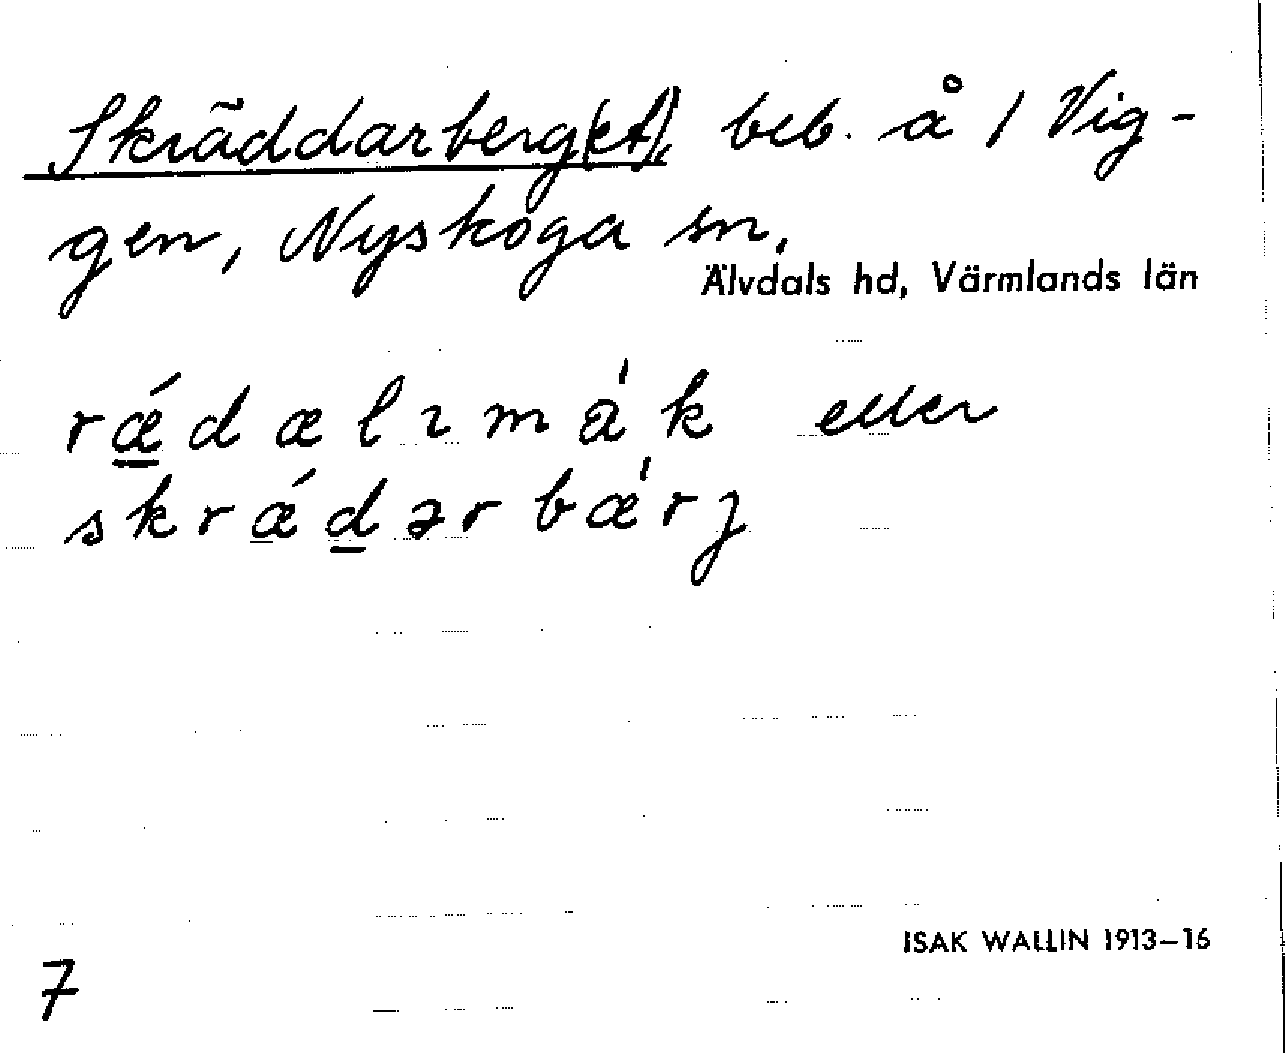 Skräddarberg(et), beb. å 1 Vig-
gen, Nyskoga sn,
Älvdals hd, Värmlands län
rǽdælıma̍k eller
skrǽdərbæ̍rj
ISAK WALLIN 1913–16
7